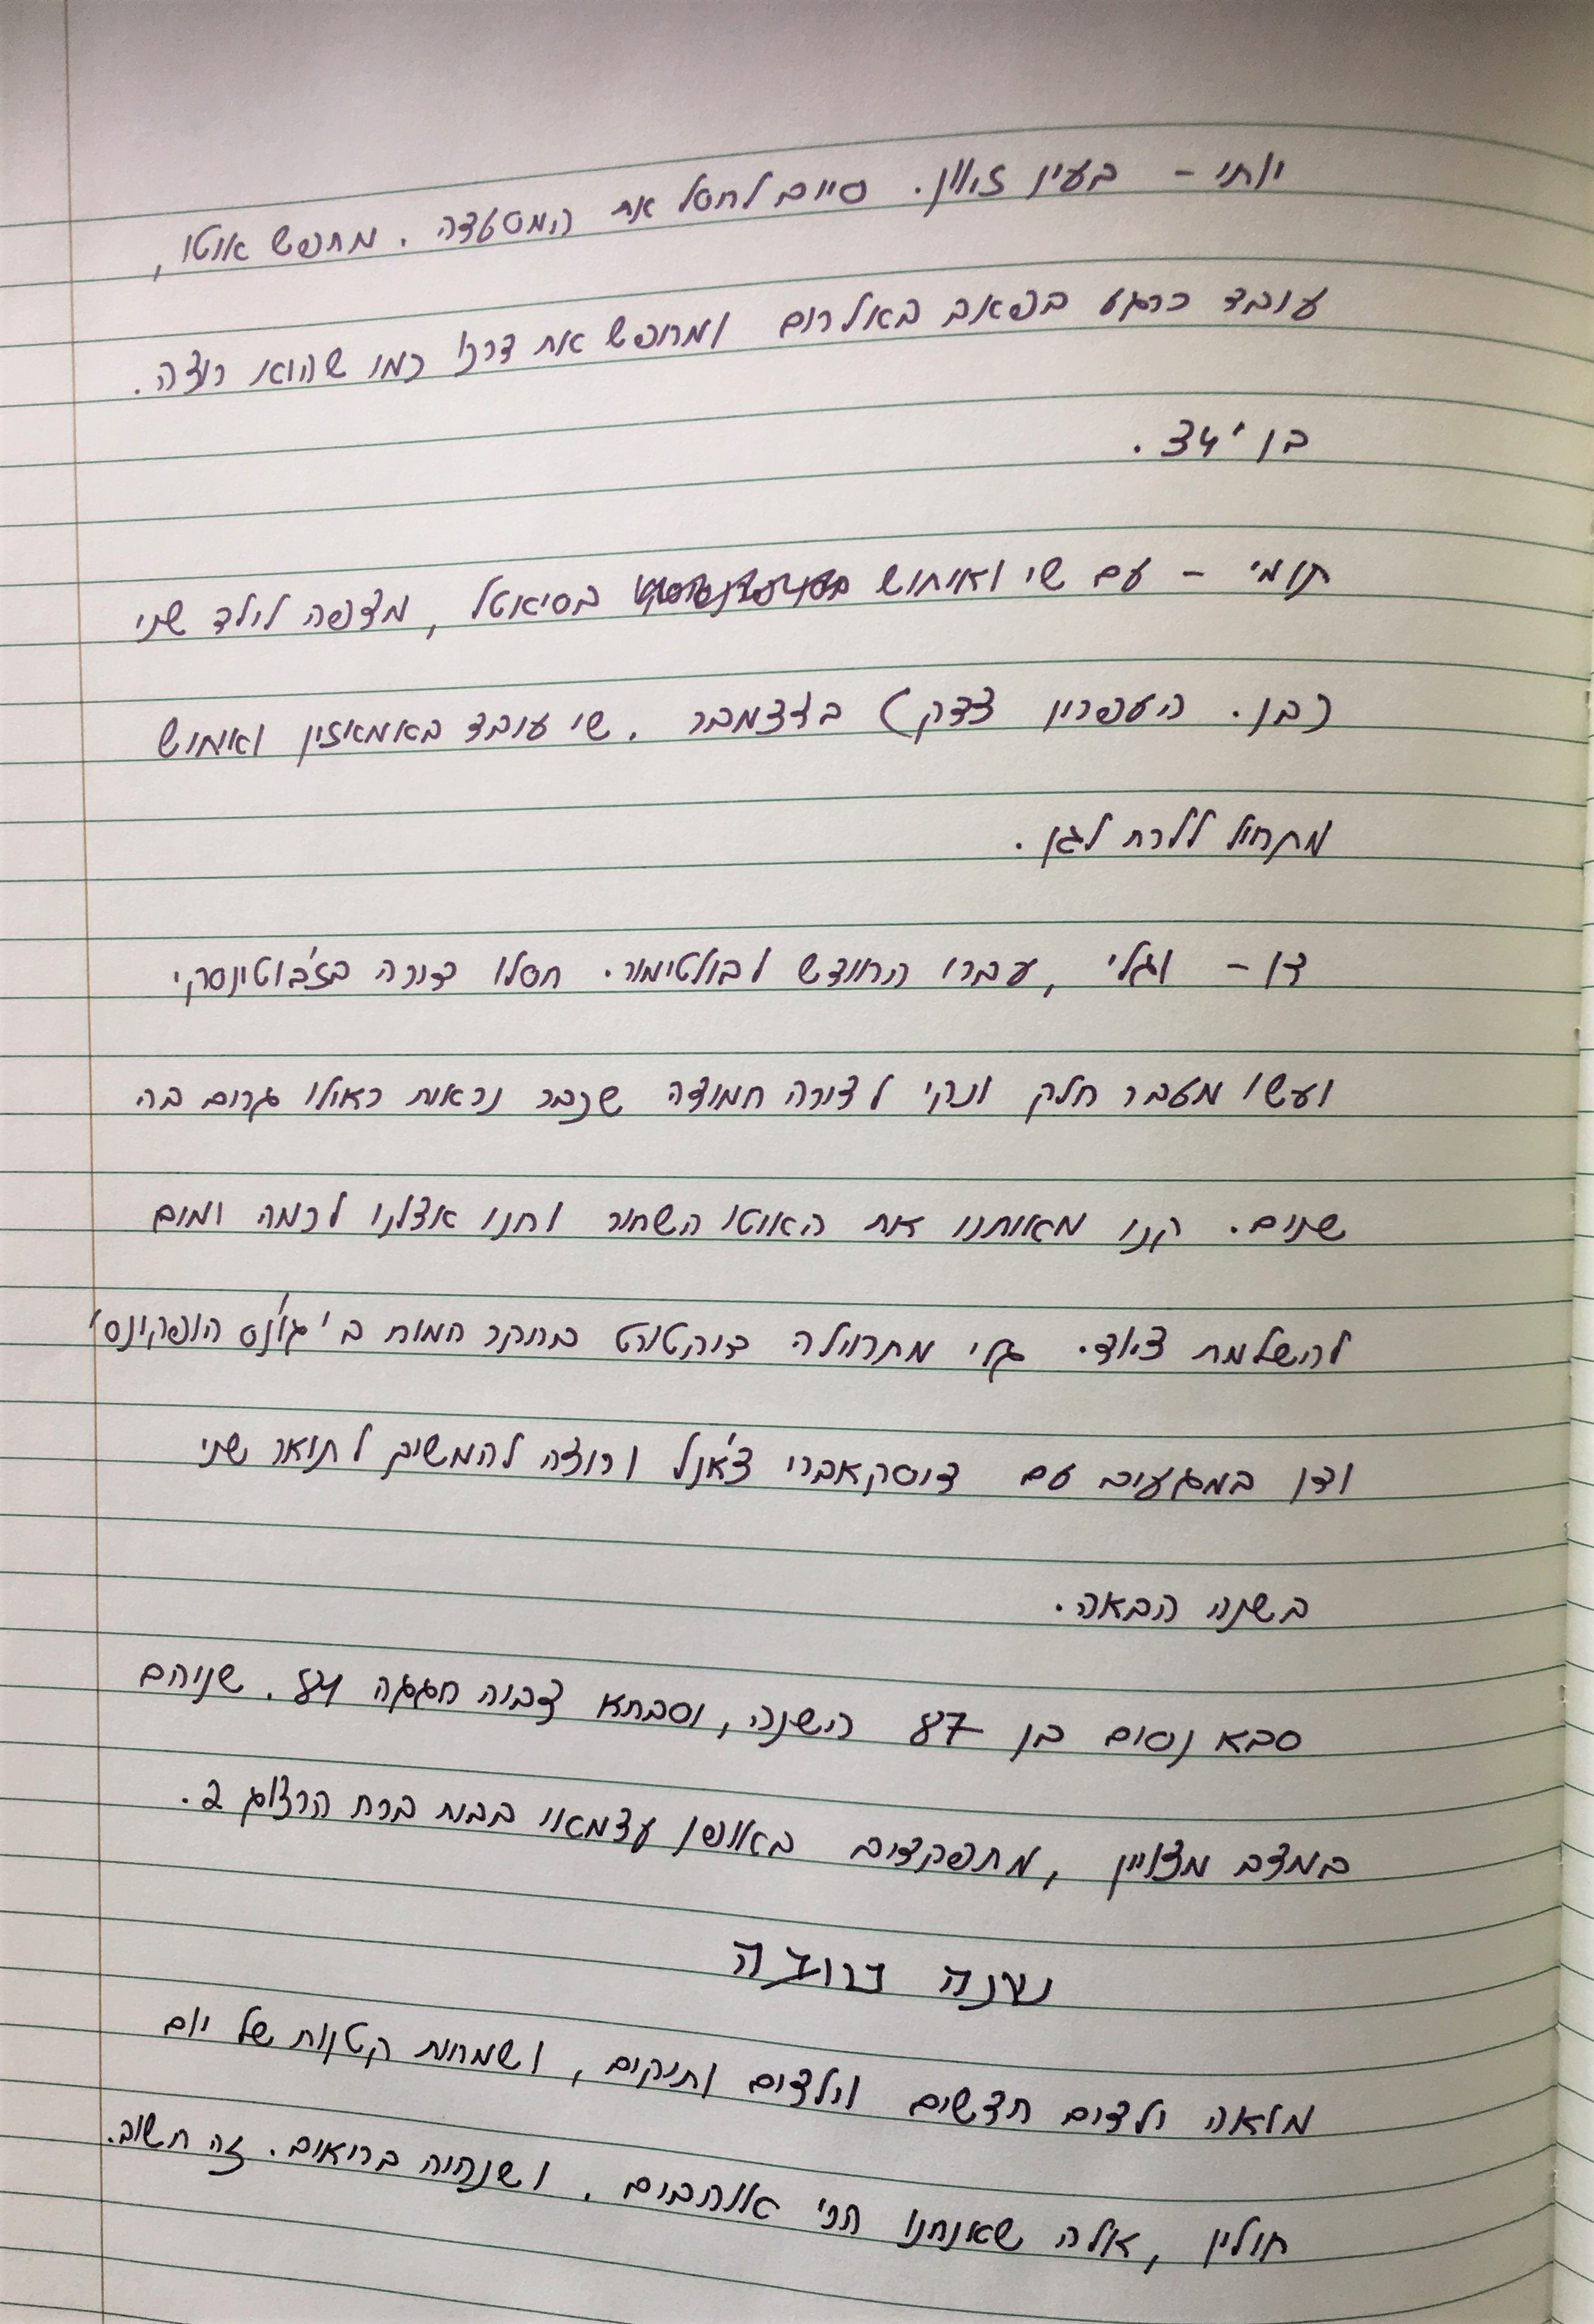 יותי - בעין זיוון. סיים לחסל את המסעדה. מחפש אוטו,
עובד כרגע בפאב באלרום ומחפש את דרכו כמו שהוא רוצה.
בן 34'.
תומי - עם שי ואיתוש בסיאטל, מצפה לילד שני
(בן. העפרון צדק) בדצמבר. שי עובד באמאזון ואיתוש
מתחיל ללכת לגן.
דן - וגלי, עברו החודש לבולטימור. חסלו דירה בז'בוטינסקי
ועשו מעבר חלק ונקי לדירה חמודה שכבר נראית כאילו גרים בה
שנים. קנו מאיתנו את האוטו השחור וחנו אצלנו לכמה ימים
להשלמת ציוד. גלי מתחילה דוקטורט בחקר המוח ב'ג'ונס הופקינס'
ודן במגעים עם דיסקאברי צ'אנל ורוצה להמשיך לתואר שני
בשנה הבאה.
סבא נסים בן 87 השנה, וסבתא צביה חגגה 84. שניהם
במצב מצויין, מתפקדים באופן עצמאי בבית ברח הרצוג 2.
שנה טובה
מלאה ילדים חדשים וילדים ותיקים, ושמחות קטנות של יום
חולין, אלה שאנחנו הכי אוהבים. ושנהיה בריאים. זה חשוב.